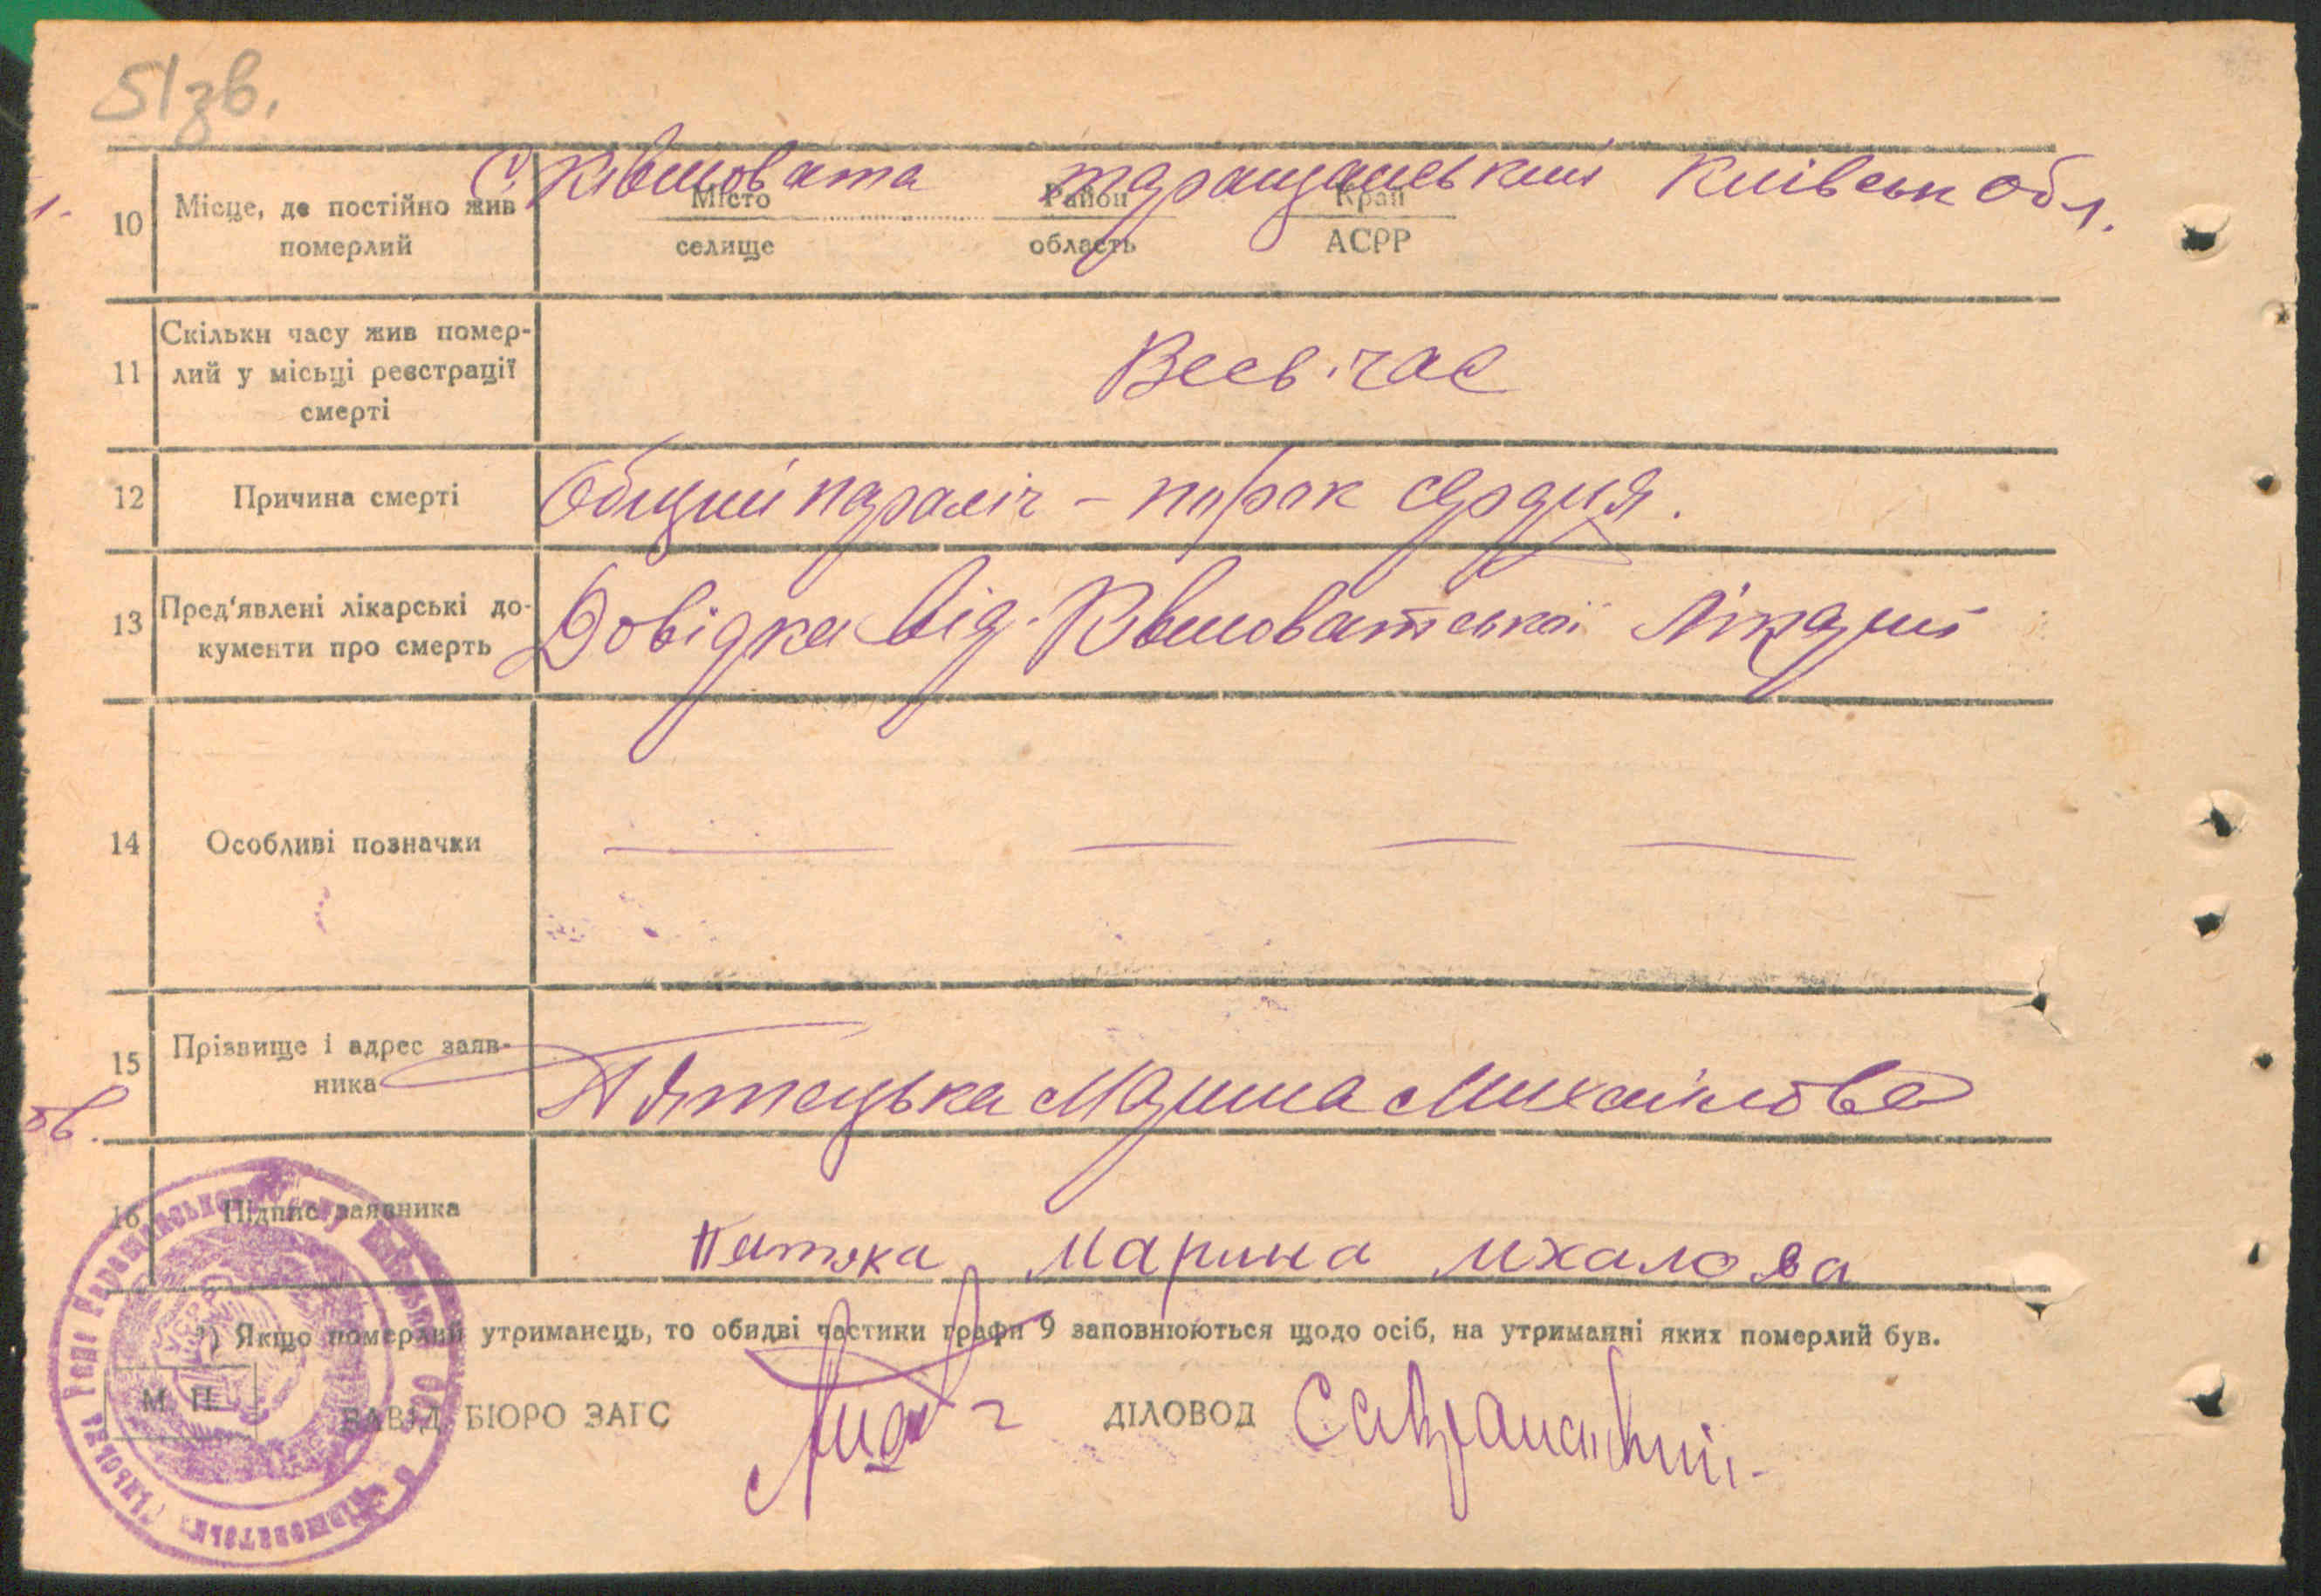 51зв.
10 Місце, де постійно жив померлий
С. Ківшовата таращанський Київськ обл.
Місто Район Край
селище область АСРР
11 Скільки часу жив помер-
лий у місьці реєстрації
смерті
Весь час
12 Причина смерті
Общий параліч – порок сердця.
13 Пред'явлені лікарські до-
кументи про смерть
Довідка від. Ківшоватської Лікарні
14 Особливі позначки
— — — —
15 Прізвище і адрес заяв-
ника
Пятецька Марина Михайлова
ов.
16 Підпис заявника
Пятяка Марина Мхалова
*) Якщо померлий утриманець, то обидві частини графи 9 заповнюються щодо осіб, на утриманні яких померлий був.
М. П. ЗАВІД. БЮРО ЗАГС
ДІЛОВОД